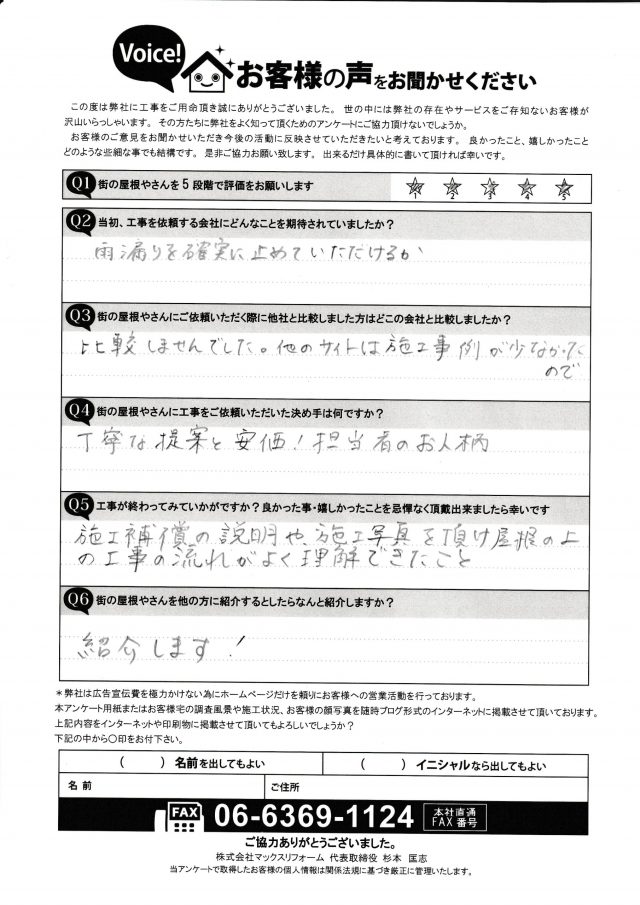 Voice!
お客様の声をお聞かせください
この度は弊社に工事をご用命頂き誠にありがとうございました。 世の中には弊社の存在やサービスをご存知ないお客様が
沢山いらっしゃいます。 その方たちに弊社をよく知って頂くためのアンケートにご協力頂けないでしょうか。
お客様のご意見をお聞かせいただき今後の活動に反映させていただきたいと考えております。 良かったこと、嬉しかったこと
どのような些細な事でも結構です。 是非ご協力お願い致します。 出来るだけ具体的に書いて頂ければ幸いです。
Q1 街の屋根やさんを5段階で評価をお願いします
1 2 3 4 5
Q2 当初、工事を依頼する会社にどんなことを期待されていましたか?
雨漏りを確実に止めていただけるか
Q3 街の屋根やさんにご依頼いただく際に他社と比較しました方はどこの会社と比較しましたか?
比較しませんでした。他のサイトは施工事例が少なかった
ので
Q4 街の屋根やさんに工事をご依頼いただいた決め手は何ですか?
丁寧な提案と安価!担当者のお人柄
Q5 工事が終わってみていかがですか?良かった事・嬉しかったことを忌憚なく頂戴出来ましたら幸いです
施工補償の説明や、施工写真を頂け屋根の上
の工事の流れがよく理解できたこと
Q6 街の屋根やさんを他の方に紹介するとしたらなんと紹介しますか?
紹介します!
＊弊社は広告宣伝費を極力かけない為にホームページだけを頼りにお客様への営業活動を行っております。
本アンケート用紙またはお客様宅の調査風景や施工状況、お客様の顔写真を随時ブログ形式のインターネットに掲載させて頂いております。
上記内容をインターネットや印刷物に掲載させて頂いてもよろしいでしょうか?
下記の中から〇印をお付下さい。
( ) 名前を出してもよい ( ) イニシャルなら出してもよい
名前 ご住所
FAX 06-6369-1124 本社直通 FAX番号
ご協力ありがとうございました。
株式会社マックスリフォーム 代表取締役 杉本 匡志
当アンケートで取得したお客様の個人情報は関係法規に基づき厳正に管理いたします。